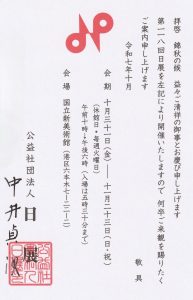 拝啓　錦秋の候　益々ご清祥の御事とお慶び申し上げます
第一一八回日展を左記により開催いたしますので　何卒ご来観を賜りたく
ご案内申し上げます
敬具
令和七年十月
会期　十月三十一日（金）―十一月二十三日（日・祝）
（休館日・毎週火曜日）
午前十時～午後六時（入場は五時三十分まで）
会場　国立新美術館（港区六本木七―二二―二）
公益社団法人　日展
中井貞次